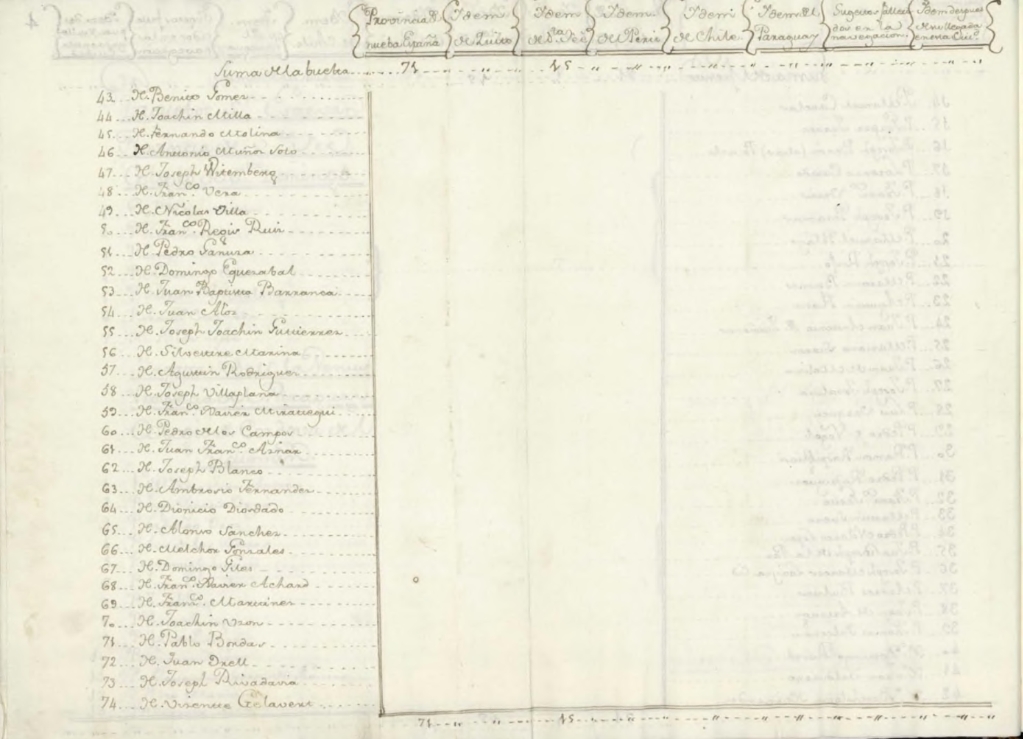 Provincia de nueba España
Idem de Quito
Idem de Sta. Feé
Idem del Perú
Idem de Chile
Idem del Paraguay
Sugetos fallecidos en la navegacion
Idem despues de su llegada en esta Ciud.
Suma de la buelta 71 45
43. H. Benito Gomes
44. H. Joachin Milla
45. H. Fernando Molina
46. H. Antonio Muños Soto
47. H. Joseph Witemberg
48. H. Fran.co Vera
49. H. Nicolas Villa
50. H. Fran.co Regis Ruis
51. H. Pedro
52. H. Domingo Eguerabal
53. H. Juan Baptista Barranca
54. H. Juan Alos
55. H. Joseph Joachin Gutierres
56. H. Silvestre Marina
57. H. Agustin Rodrigues
58. H. Joseph Villaplana
59. H. Fran.co Xavier
60. H. Pedro Campos
61. H. Juan Fran.co Aznar
62. H. Joseph Blanco
63. H. Ambrosio Fernandes
64. H. Dionicio Diosdado
65. H. Alonso Sanches
66. H. Melchor Gonzales
67. H. Domingo Giles
68. H. Fran.co Xavier Achard
69. H. Fran.co Martines
70. H. Joachin Uson
71. H. Pablo Bordas
72. H. Juan Orell
73. H. Joseph Rivadavia
74. H. Vicente Gelavert
71 45